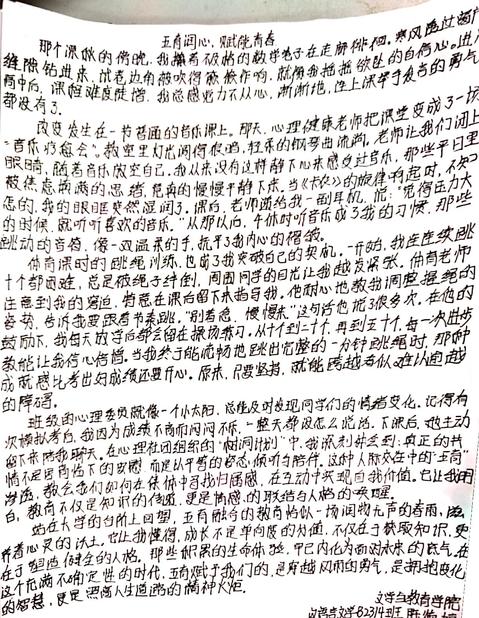 五育润心,赋能青春
那个深秋的傍晚,我攥着不及格的数学卷子在走廊徘徊。寒风透过窗户
缝隙钻进来,试卷边角被吹得簌簌作响,就像我摇摇欲坠的自信心。进入
高中后,课程难度陡增,我总感觉力不从心,渐渐地,连上课举手发言的勇气
都没有了。
改变发生在一节普通的音乐课上。那天,心理健康老师把课堂变成了一场
"音乐疗愈会"。教室里灯光调得很暗,轻柔的钢琴曲流淌,老师让我们闭上
眼睛,随着音乐放空自己。我从来没有这样静下心来感受过音乐,那些平日里
被焦虑填满的思绪,竟真的慢慢平静下来。当《卡农》的旋律响起时,不知
怎的,我的眼眶突然湿润了。课后,老师递给我一副耳机,说:"觉得压力大
的时候,就听听喜欢的音乐。"从那以后,午休时听音乐成了我的习惯,那些
跳动的音符,像一双温柔的手,抚平了我内心的褶皱。
体育课时的跳绳训练,也成了我突破自己的契机。一开始,我连连续跳
十个都困难,总是被绳子绊倒,周围同学的目光让我越发紧张。体育老师
注意到我的窘迫,特意在课后留下来指导我。他耐心地教我调整握绳的
姿势,告诉我要跟着节奏跳,"别着急,慢慢来"这句话他说了很多次。在他的
鼓励下,我每天放学后都会留在操场练习。从十个到二十个,再到五十个,每一次进步
都能让我信心倍增。当我终于能流畅地跳出完整的一分钟跳绳时,那种
成就感比考出好成绩还要开心。原来,只要坚持,就能跨越看似难以逾越
的障碍。
班级的心理委员就像一个小太阳,总能及时发现同学们的情绪变化。记得有
次模拟考后,我因为成绩不理而闷闷不乐,一整天都没怎么说话。下课后,她主动
留下来陪我聊天。在心理社团组织的"树洞计划"中,我深刻体会到:真正的共
情不是居高临下的安慰,而是以平等的姿态,倾听与陪伴。这种人际交往中的"五育"
渗透,教会我们如何在集体中寻找归属感,在互动中实现自我价值。它让我明
白,教育不仅是知识的传递,更是情感的联结与人格的唤醒。
站在大学的台阶上回望,五育融合的教育恰似一场润物无声的春雨,滋
养着心灵的沃土。它让我懂得,成长不是单向度的力量,不仅在于获取知识,更
在于塑造健全的人格。那些积累的生命体验,早已内化为面对未来的底气。在
这个充满不确定性的时代,五育赋予我们的,是穿越风雨的勇气,是拥抱变化
的智慧,更是照亮人生道路的精神火炬。
文学与教育学院
文学B2314班